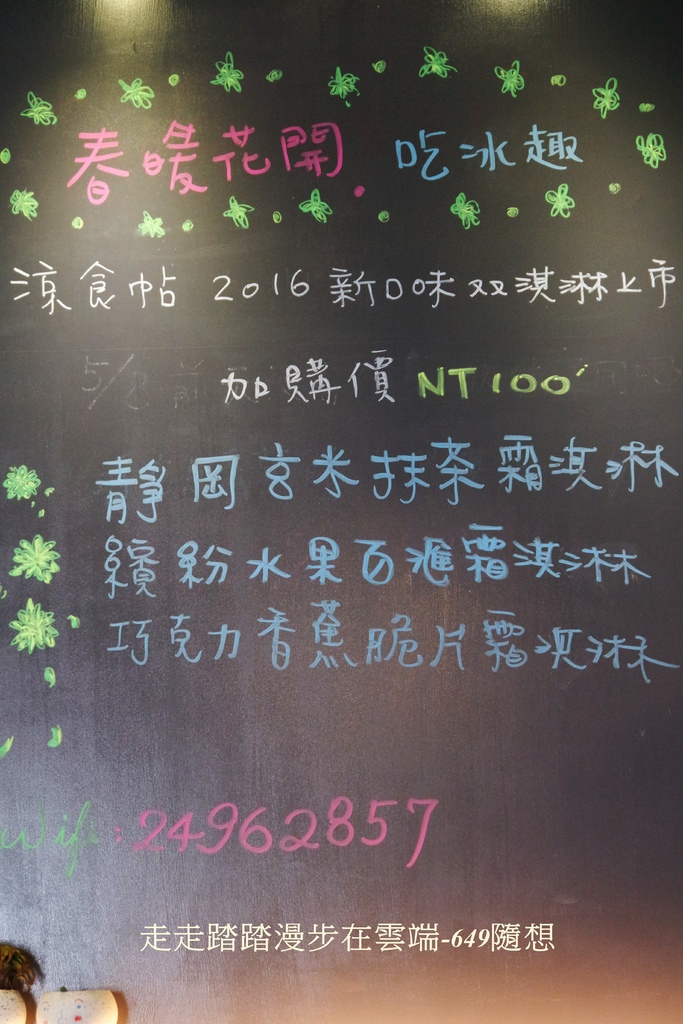 春暖花開 吃冰趣
涼食帖 2016 新口味双淇淋上市
加購價 NT100
靜岡玄米抹茶霜淇淋
繽紛水果百滙霜淇淋
巧克力香蕉脆片霜淇淋
Wifi:24962857
走走踏踏漫步在雲端-649隨想